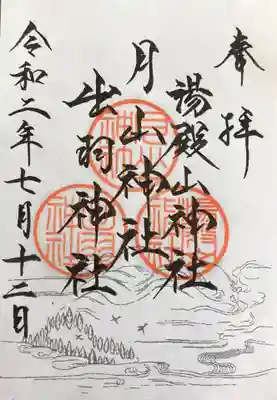 奉拝
湯殿山神社
月山神社
出羽神社
令和二年七月十二日